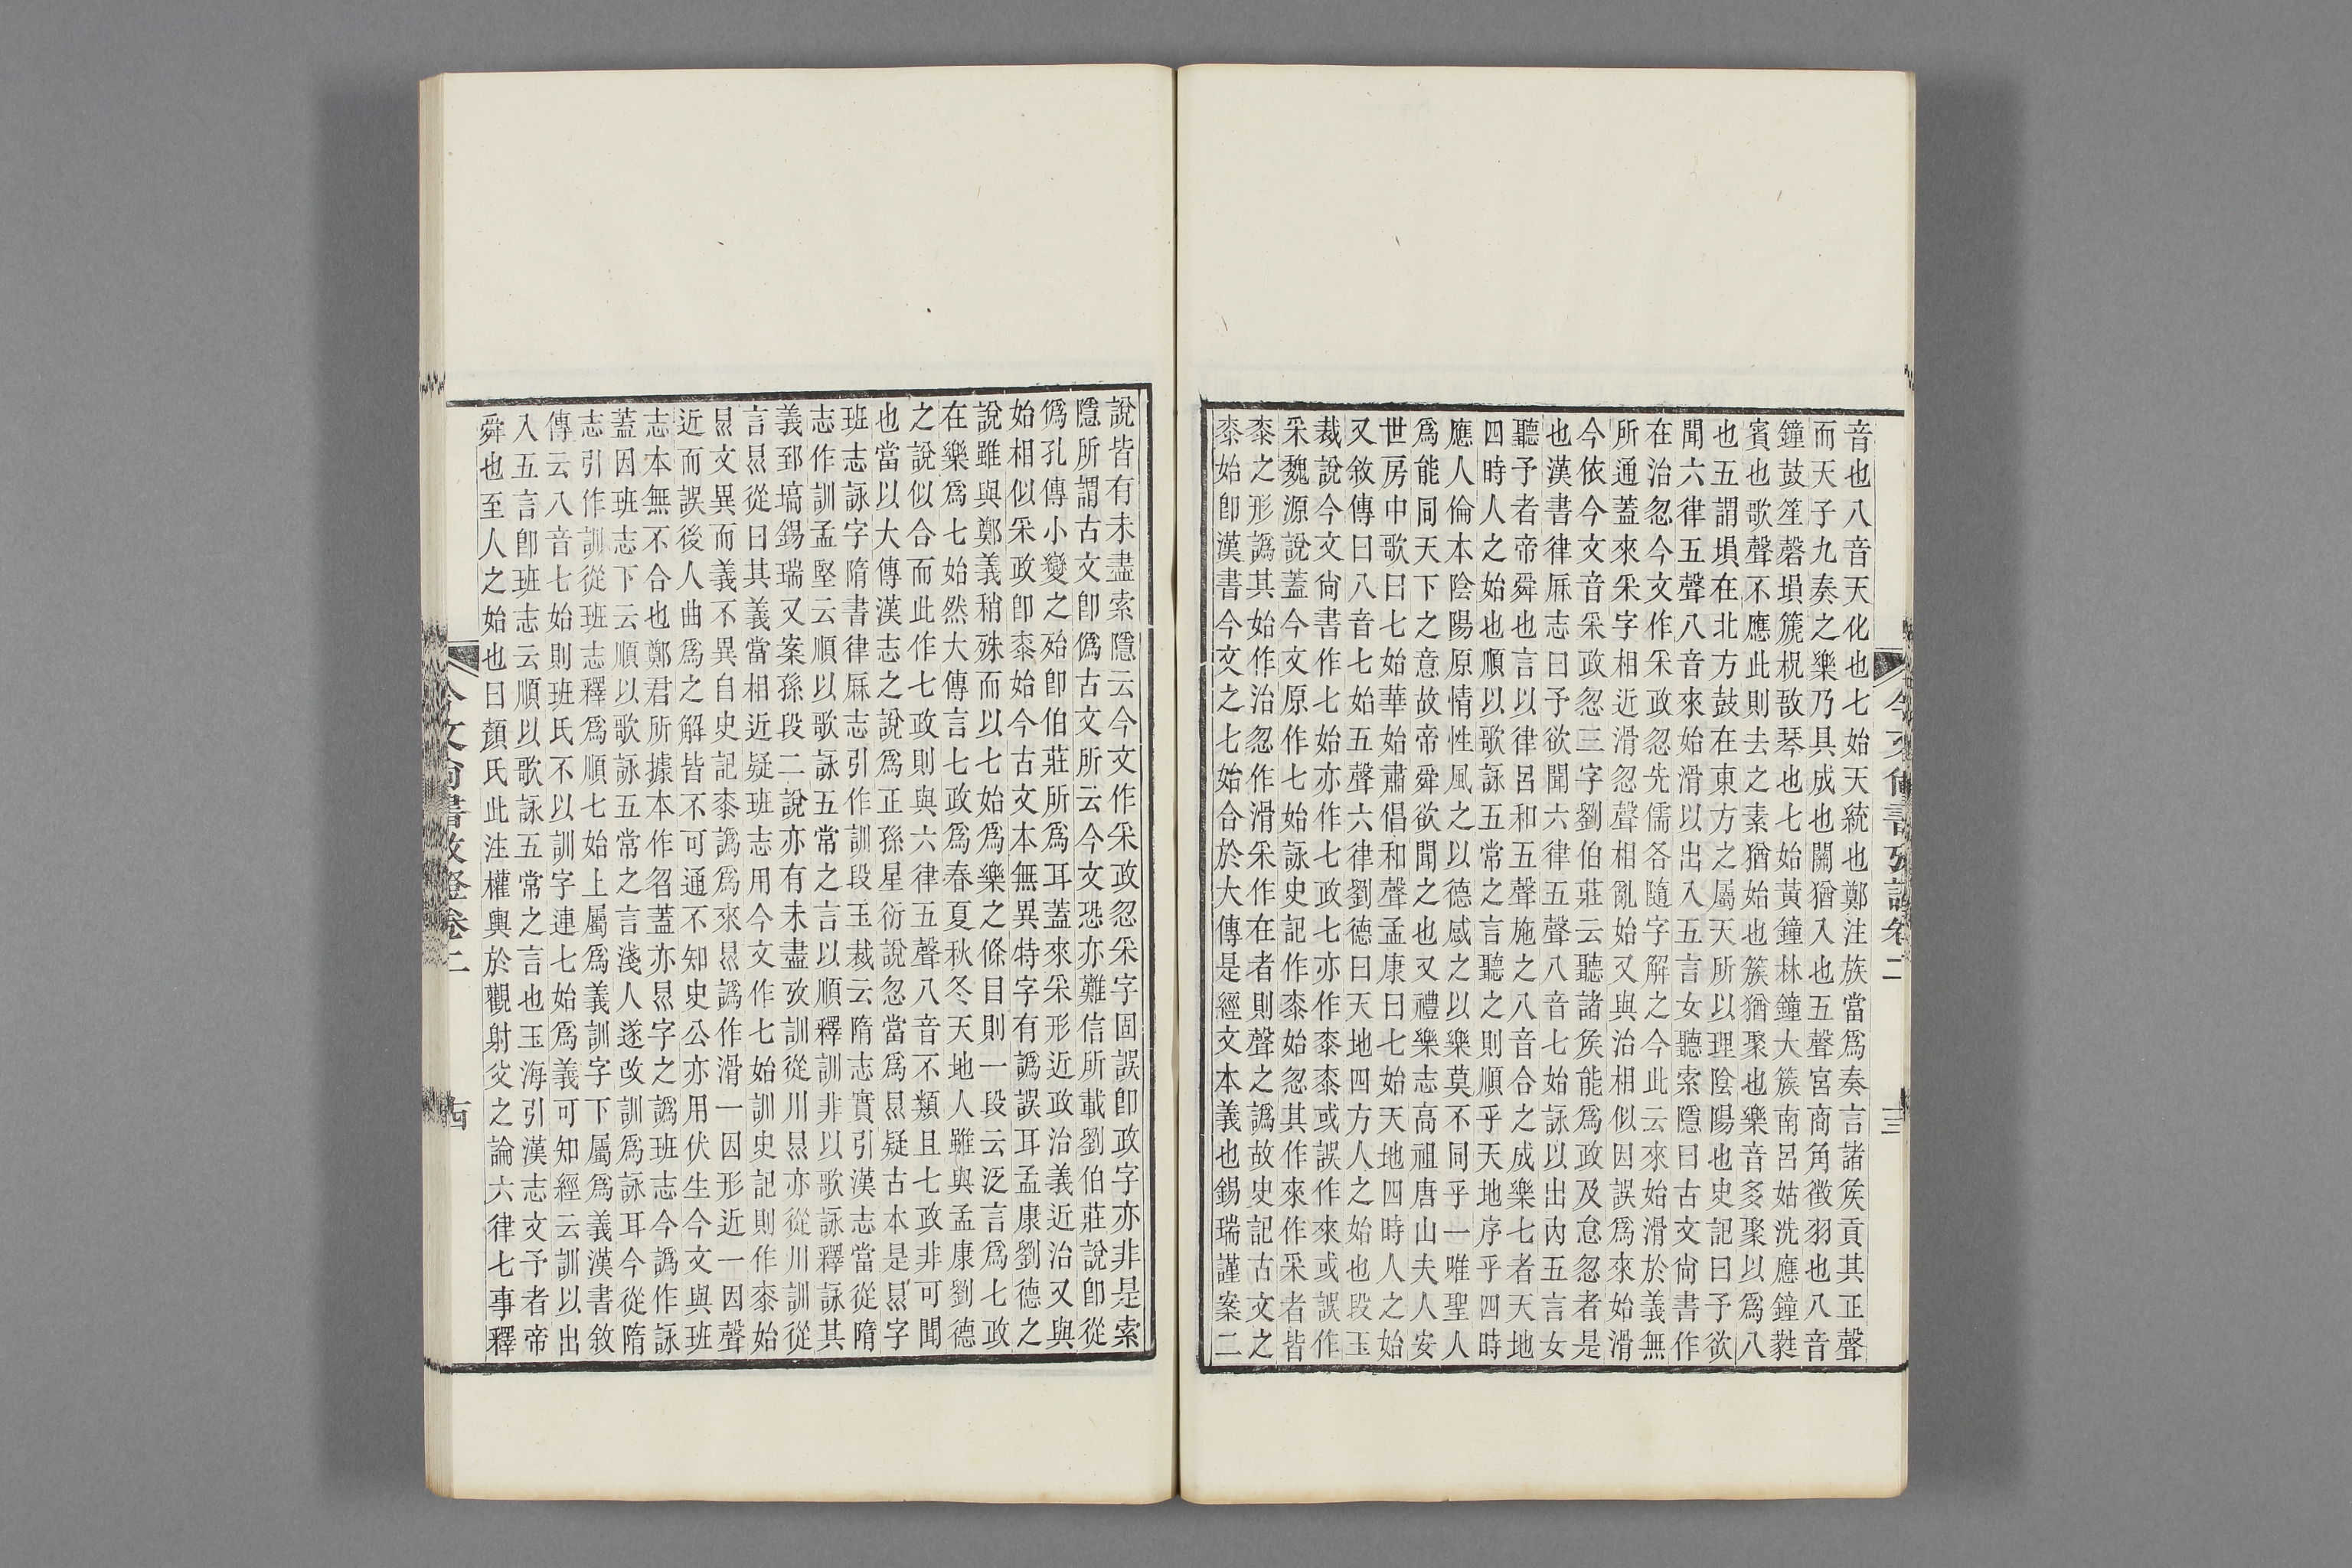 今文尙書攷證卷二
三
音也八音天化也七始天統也鄭注族當爲奏言諸矦貢其正聲
而天子九奏之樂乃具成也關猶入也五聲宮商角徵羽也八音
鐘鼓笙磬塤篪柷敔琴也七始黃鐘林鐘大簇南呂姑洗應鐘蕤
賓也歌聲不應此則去之素猶始也簇猶聚也樂音多聚以爲八
也五謂塤在北方鼓在東方之屬天所以理陰陽也史記曰予欲
聞六律五聲八音來始滑以出入五言女聽索隱曰古文尙書作
在治忽今文作采政忽先儒各隨字解之今此云來始滑於義無
所通蓋來采字相近滑忽聲相亂始又與治相似因誤爲來始滑
今依今文音采政忽三字劉伯莊云聽諸矦能爲政及怠忽者是
也漢書律厤志曰予欲聞六律五聲八音七始詠以出內五言女
聽予者帝舜也言以律呂和五聲施之八音合之成樂七者天地
四時人之始也順以歌詠五常之言聽之則順乎天地序乎四時
應人倫本陰陽原情性風之以德感之以樂莫不同乎一唯聖人
爲能同天下之意故帝舜欲聞之也又禮樂志高祖唐山夫人安
世房中歌曰七始華始肅倡和聲孟康曰七始天地四時人之始
又敘傳曰八音七始五聲六律劉德曰天地四方人之始也段玉
裁說今文尙書作七始亦作七政七亦作桼桼或誤作來或誤作
采魏源說蓋今文原作七始詠史記作桼始忽其作來作采者皆
桼之形譌其始作治忽作滑采作在者則聲之譌故史記古文之
桼始卽漢書今文之七始合於大傳是經文本義也錫瑞謹案二
說皆有未盡索隱云今文作采政忽采字固誤卽政字亦非是索
隱所謂古文卽僞古文所云今文恐亦難信所載劉伯莊說卽從
僞孔傳小變之殆卽伯莊所爲耳蓋來采形近政治義近治又與
始相似采政卽桼始今古文本無異特字有譌誤耳孟康劉德之
說雖與鄭義稍殊而以七始爲樂之條目則一段云泛言爲七政
在樂爲七始然大傳言七政爲春夏秋冬天地人雖與孟康劉德
之說似合而此作七政則與六律五聲八音不類且七政非可聞
也當以大傳漢志之說爲正孫星衍說忽當爲㫚疑古本是㫚字
班志詠字隋書律厤志引作訓段玉裁云隋志實引漢志當從隋
志作訓孟堅云順以歌詠五常之言以順釋訓非以歌詠釋詠其
義郅塙錫瑞又案孫段二說亦有未盡攷訓從川㫚亦從川訓從
言㫚從曰其義當相近疑班志用今文作七始訓史記則作桼始
㫚文異而義不異自史記桼譌爲來㫚譌作滑一因形近一因聲
近而誤後人曲爲之解皆不可通不知史公亦用伏生今文與班
志本無不合也鄭君所據本作曶蓋亦㫚字之譌班志今譌作詠
蓋因班志下云順以歌詠五常之言淺人遂改訓爲詠耳今從隋
志引作訓從班志釋爲順七始上屬爲義訓字下屬爲義漢書敘
傳云八音七始則班氏不以訓字連七始爲義可知經云訓以出
入五言卽班志云順以歌詠五常之言也玉海引漢志文予者帝
舜也至人之始也曰顏氏此注權輿於觀射父之論六律七事釋
今文尙書攷證卷二
古